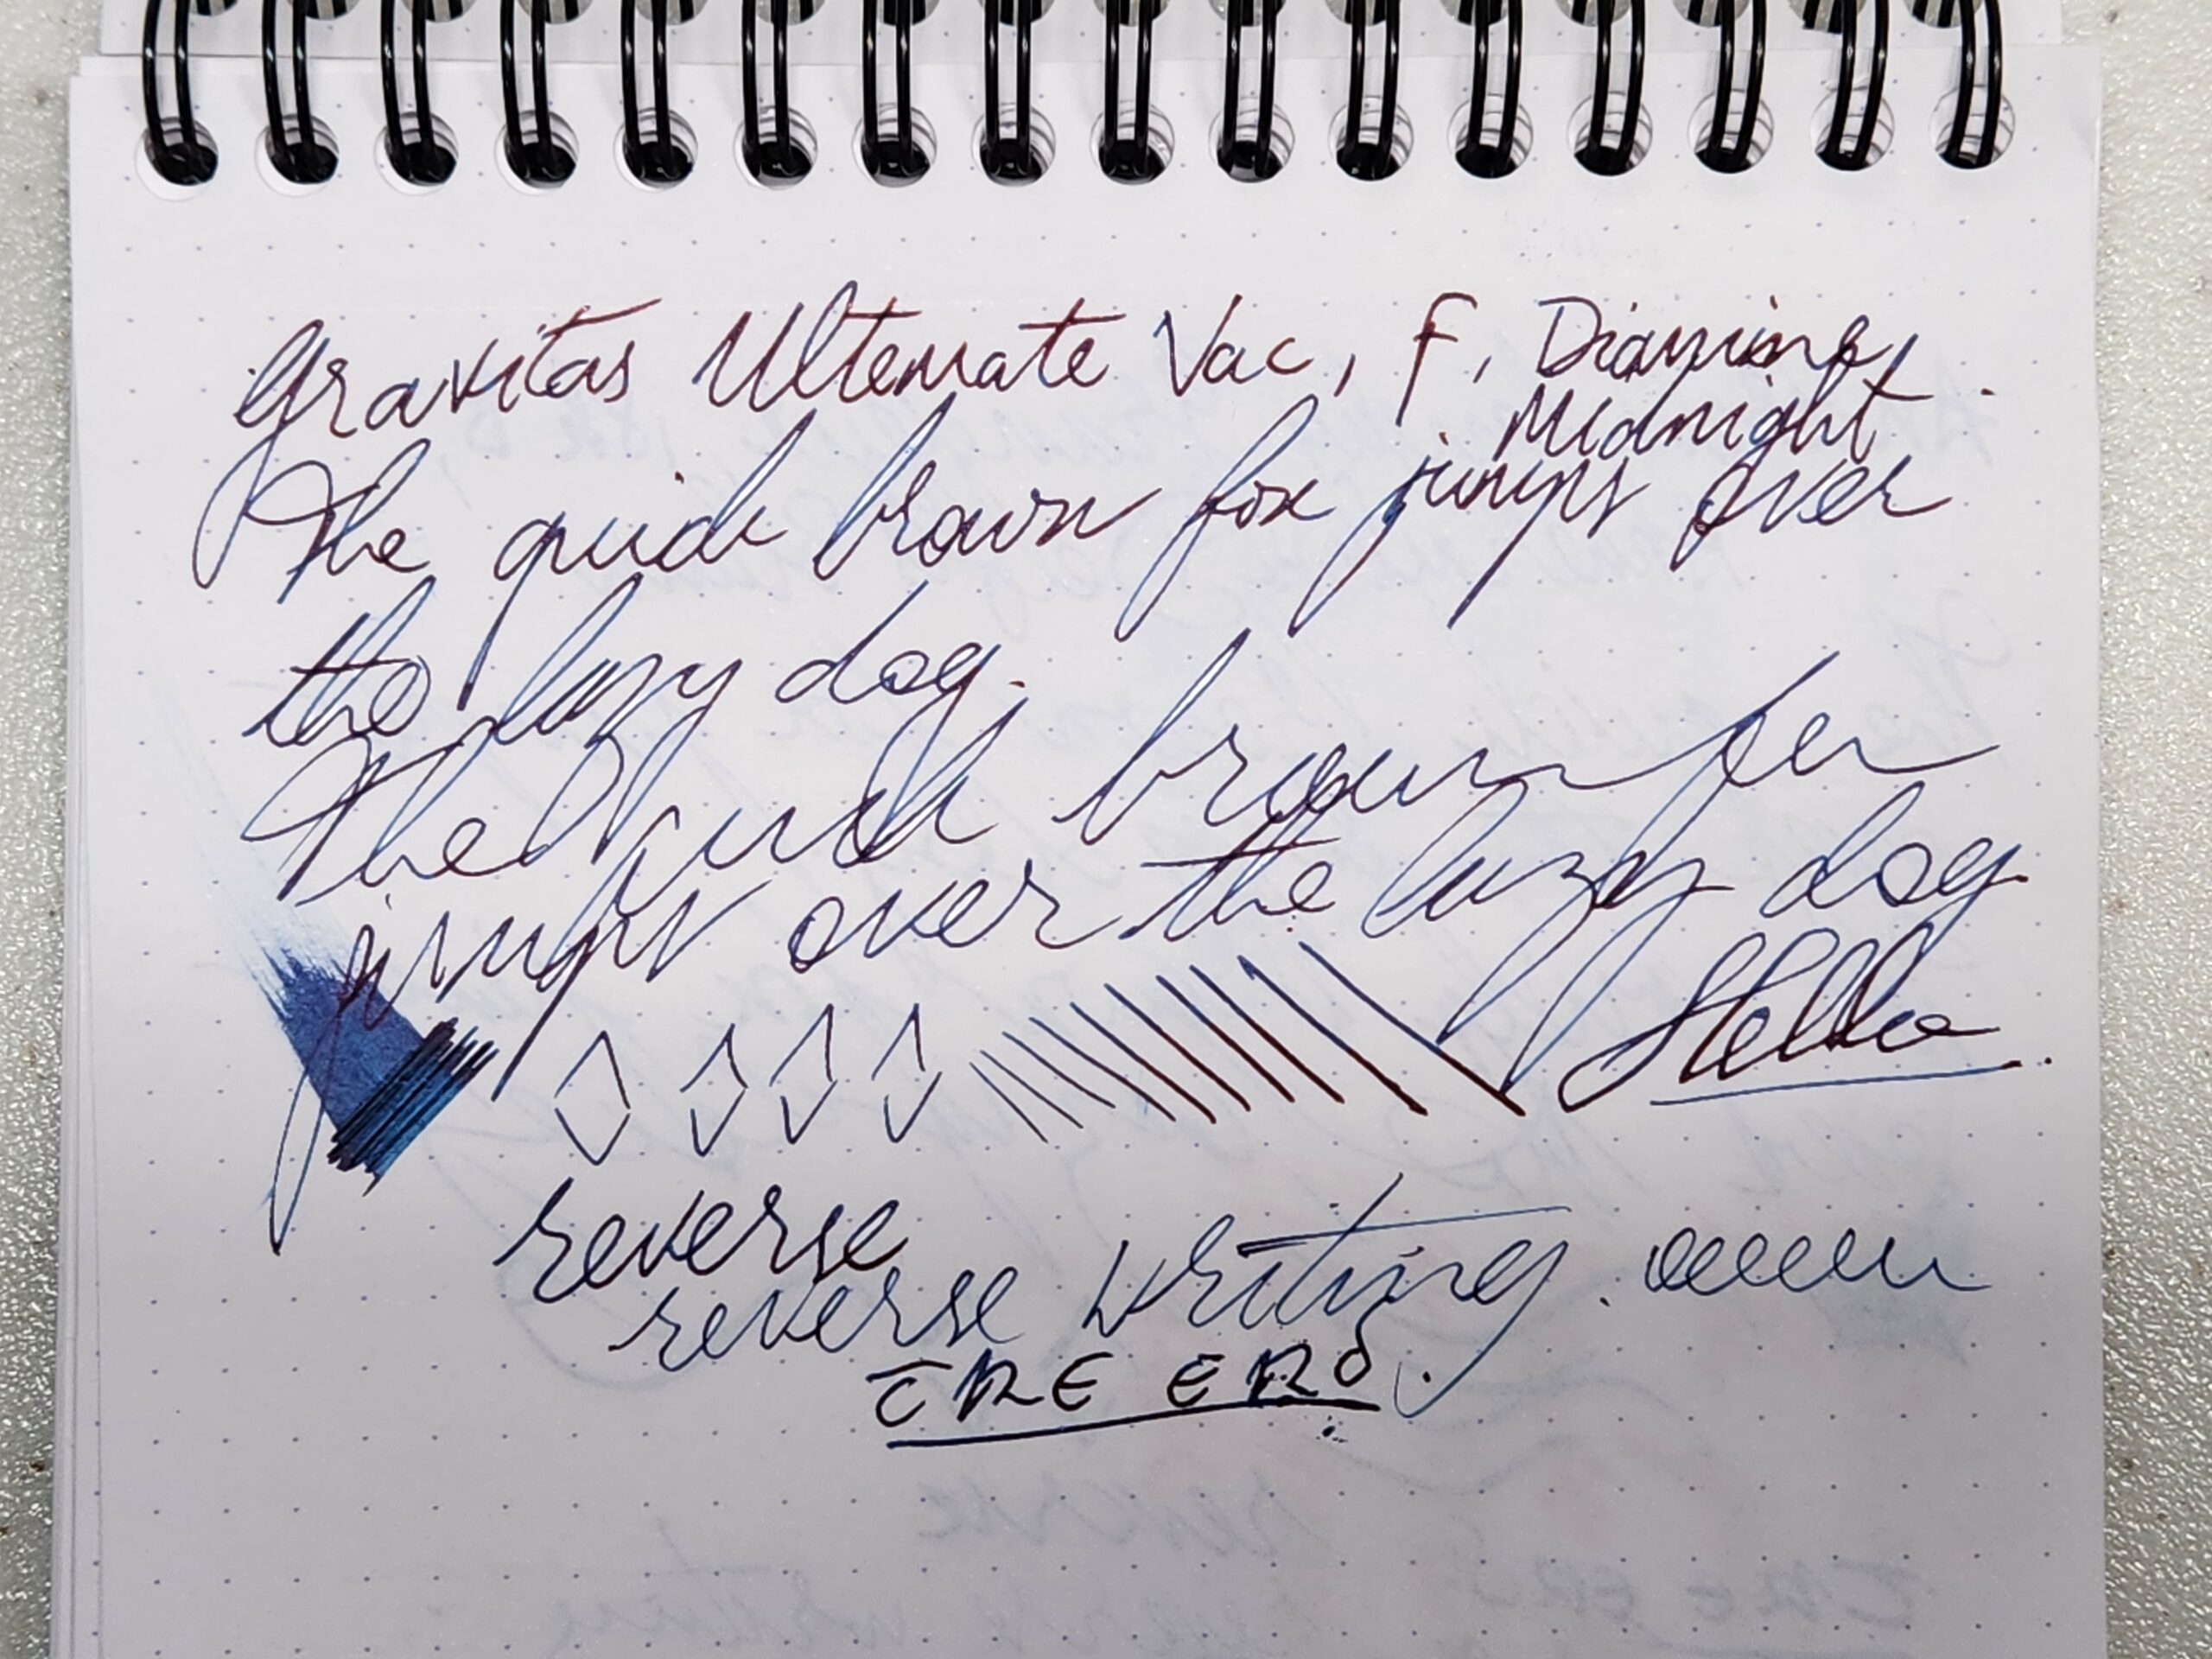 Gravitas Ultemate Vac, F, Diamine
Midnight.
The quick brown fox jumps over
the lazy dog.
The quick brown fox
jumps over the lazy dog.
Hello
reverse
reverse writing.
ERE ERO.